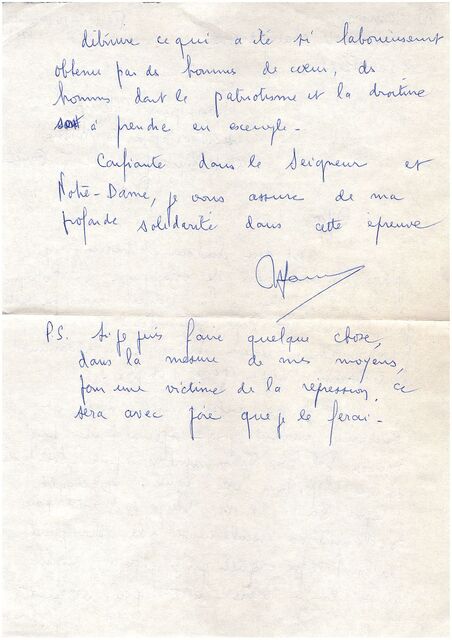 détruire ce qui a été si laborieusement
obtenu par des hommes de cœur, des
hommes dont le patriotisme et la droiture
sont à prendre en exemple.
Confiante dans le Seigneur et
Notre-Dame, je vous assure de ma
profonde solidarité dans cette épreuve
P.S. Si je puis faire quelque chose,
dans la mesure de mes moyens,
pour une victime de la répression, ce
sera avec joie que je le ferai.